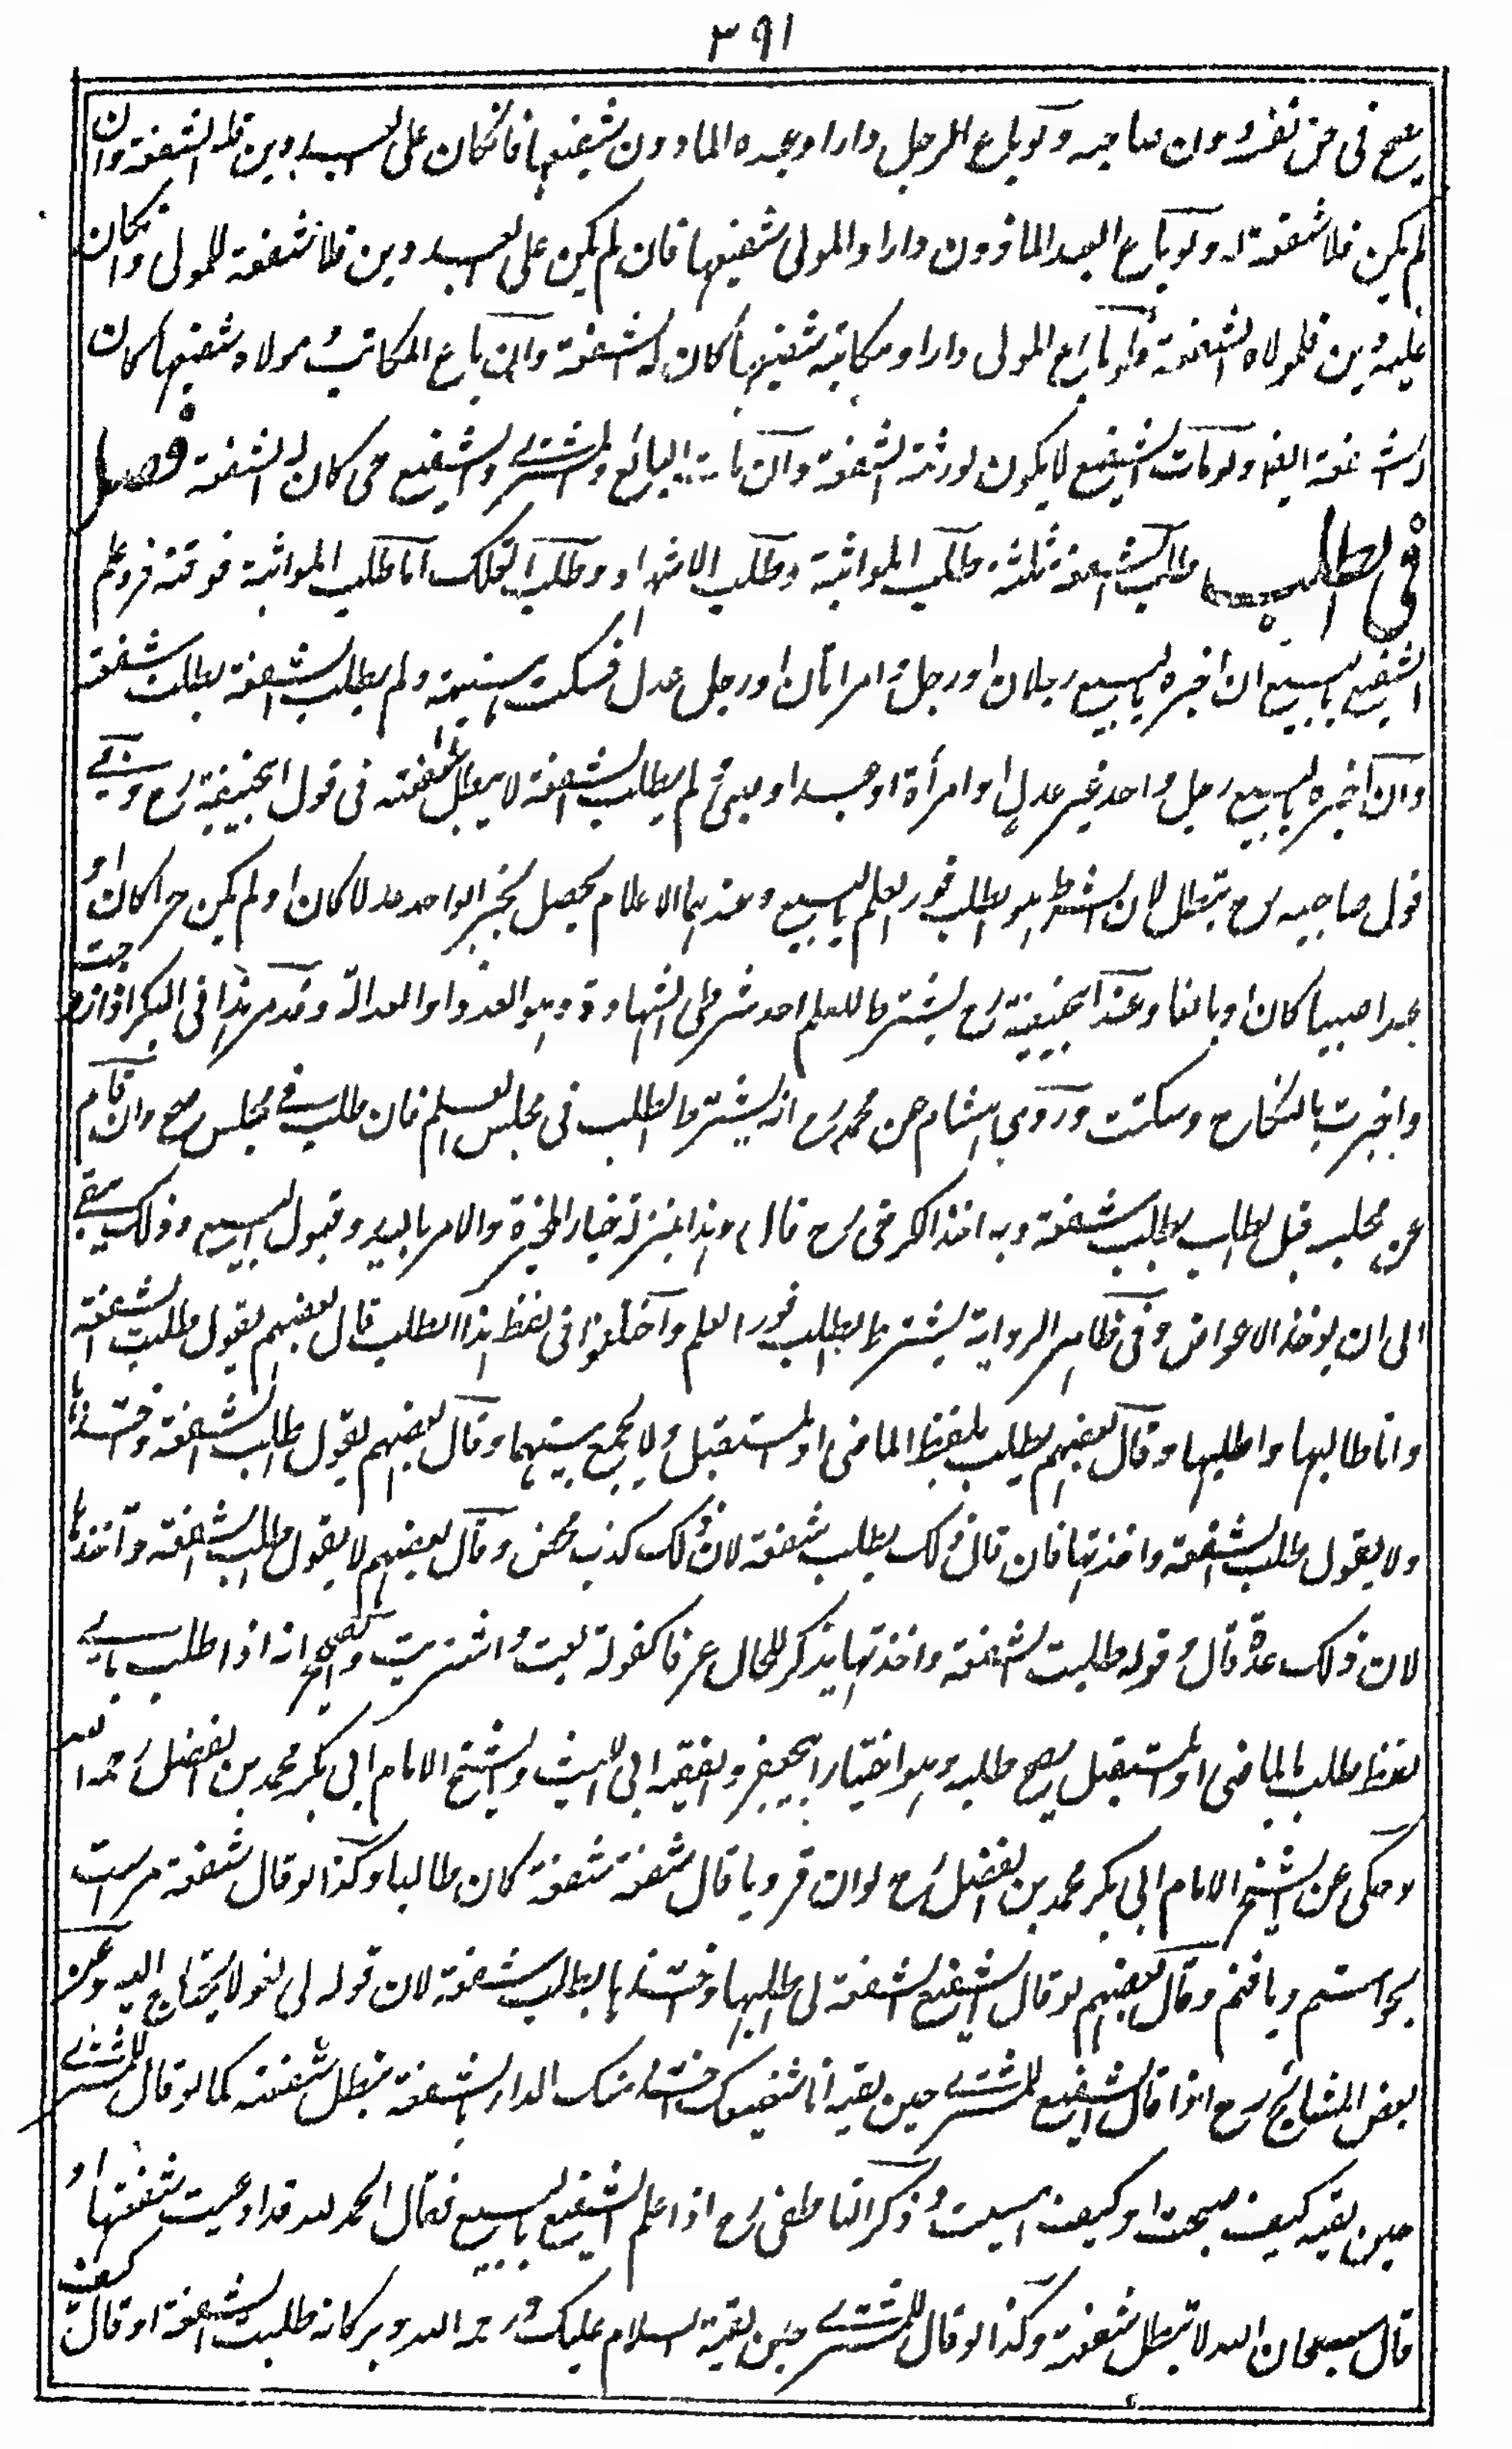 ٣٩١
يصح في حق نفسه دون صاحبه ولو باع الرجل دارا وعبده الماذون شفيعها فان كان على العبد دين فله الشفعة وان
لم يكن فلا شفعة له ولو باع العبد الماذون دارا والمولى شفيعها فان لم يكن على العبد دين فلا شفعة للمولى وان كان
عليه دين فلمولاه الشفعة ولو باع المولى دارا ومكاتبه شفيعها كان له الشفعة وان باع المكاتب ومولاه شفيعها كان
له الشفعة ايضا ولو مات الشفيع لا يكون لورثته الشفعة وان مات البائع والمشتري والشفيع حي كان له الشفعة فصل
في الطلب طلب الشفعة ثلثة طلب المواثبة وطلب الاشهاد وطلب التملك اما طلب المواثبة فوقته فور علم
الشفيع بالبيع ان اخبره بالبيع رجلان او رجل وامرأتان او رجل عدل فسكت هنيهة ولم يطلب الشفعة بطلت شفعته
وان اخبره بالبيع رجل واحد غير عدل او امرأة او عبد او صبي لم يطلب الشفعة لا يبطل شفعته في قول ابيحنيفة رح وفي
قول صاحبيه رح تبطل لان الشرط هو الطلب فور العلم بالبيع وعندهما الاعلام يحصل بخبر الواحد عدلا كان او لم يكن حرا كان او
عبدا صبيا كان او بالغا وعند ابيحنيفة رح يشترط للعلم احد شرطي الشهادة وهو العدد او العدالة وقد مر هذا في البكر اذا زوجت
واخبرت بالنكاح وسكتت وروى هشام عن محمد رح انه يشترط الطلب في مجلس العلم فان طلب في مجلس صح وان قام
عن مجلسه قبل الطلب بطلت شفعته وبه اخذ الكرخي رح قال وهذا بمنزلة خيار المخيرة والامر باليد وقبول البيع وذلك يبقى
الى ان يوخذ الاعراض وفي ظاهر الرواية يشترط الطلب فور العلم واختلفوا في لفظ هذا الطلب قال بعضهم يقول طلبت الشفعة
وانا طالبها واطلبها وقال بعضهم يطلب بلفظ الماضي او المستقبل ولا يجمع بينهما وقال بعضهم يقول اطلب الشفعة وآخذها
ولا يقول طلبت الشفعة واخذتها فان قال ذلك بطلت شفعته لان ذلك كذب محض وقال بعضهم لا يقول اطلب الشفعة وآخذها
لان ذلك عدة قال وقوله طلبت الشفعة واخذتها يذكر للحال عرفا كقوله بعت واشتريت والصحيح انه اذا طلب باي
لفظ طلب بالماضي او المستقبل يصح طلبه وهو اختيار ابيجعفر والفقيه ابي الليث والشيخ الامام ابي بكر محمد بن الفضل رحمه الله
وحكى عن الشيخ الامام ابي بكر محمد بن الفضل رح لو ان قرويا قال شفعة شفعة كان طالبا وكذا لو قال شفعة مراست
بخواستم ويافتم وقال بعضهم لو قال الشفيع الشفعة لي اطلبها وآخذها بطلت شفعته لان قوله لي لغو لا يحتاج اليه وعن
بعض المشايخ رح اذا قال الشفيع للمشتري حين لقيه انا شفيعك آخذ منك الدار بالشفعة تبطل شفعته كما لو قال للمشتري
حين لقيه كيف اصبحت او كيف امسيت وذكر الناطفي رح اذا علم الشفيع بالبيع فقال الحمد لله قد ادعيت شفعتها او
قال سبحان الله لا تبطل شفعته وكذا لو قال للمشتري حين لقيه السلام عليك ورحمة الله وبركاته طلبت الشفعة او قال كيف